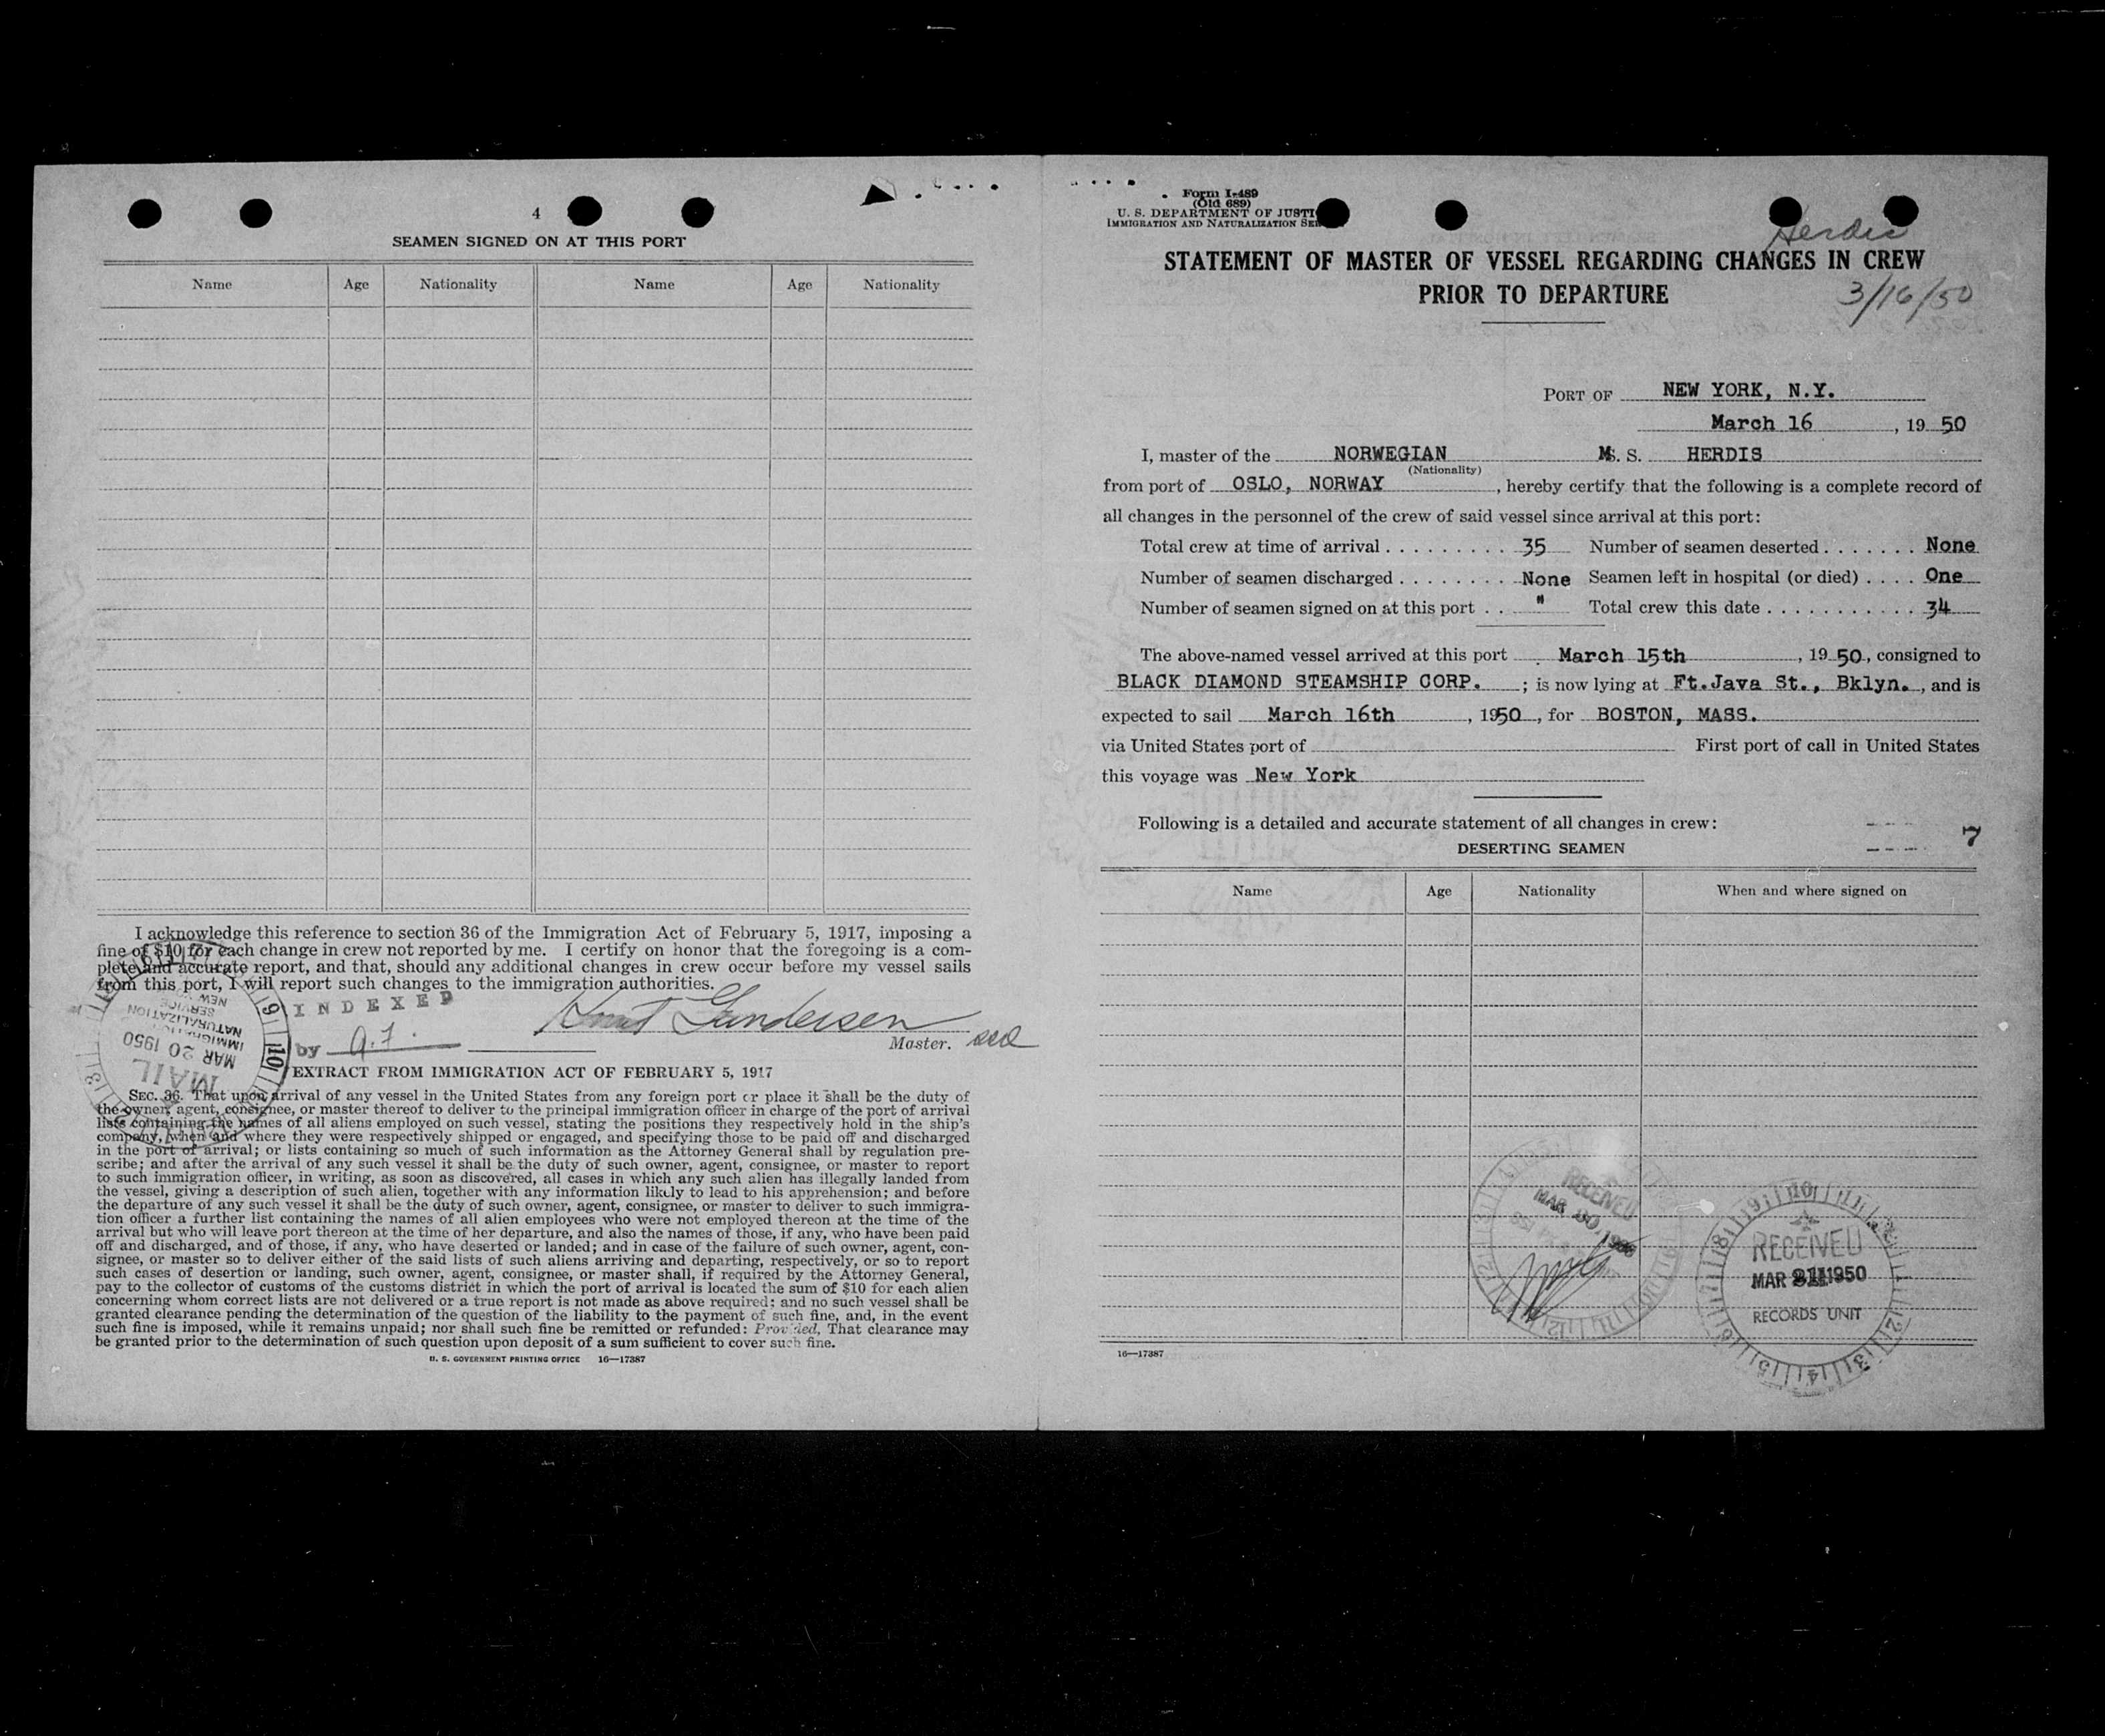 4
SEAMEN SIGNED ON AT THIS PORT
Name Age Nationality Name Age Nationality
I acknowledge this reference to section 36 of the Immigration Act of February 5, 1917, imposing a
fine of $10 for each change in crew not reported by me. I certify on honor that the foregoing is a com-
plete and accurate report, and that, should any additional changes in crew occur before my vessel sails
from this port, I will report such changes to the immigration authorities.
INDEXED
by
Gundersen
Master.
MAR 20 1950
MAIL
EXTRACT FROM IMMIGRATION ACT OF FEBRUARY 5, 1917
SEC. 36. That upon arrival of any vessel in the United States from any foreign port or place it shall be the duty of
the owner, agent, consignee, or master thereof to deliver to the principal immigration officer in charge of the port of arrival
lists containing the names of all aliens employed on such vessel, stating the positions they respectively hold in the ship's
company, when and where they were respectively shipped or engaged, and specifying those to be paid off and discharged
in the port of arrival; or lists containing so much of such information as the Attorney General shall by regulation pre-
scribe; and after the arrival of any such vessel it shall be the duty of such owner, agent, consignee, or master to report
to such immigration officer, in writing, as soon as discovered, all cases in which any such alien has illegally landed from
the vessel, giving a description of such alien, together with any information likely to lead to his apprehension; and before
the departure of any such vessel it shall be the duty of such owner, agent, consignee, or master to deliver to such immigra-
tion officer a further list containing the names of all alien employees who were not employed thereon at the time of the
arrival but who will leave port thereon at the time of her departure, and also the names of those, if any, who have been paid
off and discharged, and of those, if any, who have deserted or landed; and in case of the failure of such owner, agent, con-
signee, or master so to deliver either of the said lists of such aliens arriving and departing, respectively, or so to report
such cases of desertion or landing, such owner, agent, consignee, or master shall, if required by the Attorney General,
pay to the collector of customs of the customs district in which the port of arrival is located the sum of $10 for each alien
concerning whom correct lists are not delivered or a true report is not made as above required; and no such vessel shall be
granted clearance pending the determination of the question of the liability to the payment of such fine, and, in the event
such fine is imposed, while it remains unpaid; nor shall such fine be remitted or refunded: Provided, That clearance may
be granted prior to the determination of such question upon deposit of a sum sufficient to cover such fine.
U. S. GOVERNMENT PRINTING OFFICE 16—17387
Form I-489
(Old 689)
U. S. DEPARTMENT OF JUSTI
IMMIGRATION AND NATURALIZATION SER
Herdis
STATEMENT OF MASTER OF VESSEL REGARDING CHANGES IN CREW
PRIOR TO DEPARTURE
3/16/50
PORT OF NEW YORK, N.Y.
March 16, 1950
I, master of the NORWEGIAN M. S. HERDIS
(Nationality)
from port of OSLO, NORWAY, hereby certify that the following is a complete record of
all changes in the personnel of the crew of said vessel since arrival at this port:
Total crew at time of arrival . . . . . . . . . 35 Number of seamen deserted . . . . . . . None
Number of seamen discharged . . . . . . . . None Seamen left in hospital (or died) . . . . One
Number of seamen signed on at this port . . " Total crew this date . . . . . . . . . . . 34
The above-named vessel arrived at this port March 15th, 1950, consigned to
BLACK DIAMOND STEAMSHIP CORP. ; is now lying at Ft.Java St., Bklyn., and is
expected to sail March 16th, 1950, for BOSTON, MASS.
via United States port of First port of call in United States
this voyage was New York
Following is a detailed and accurate statement of all changes in crew:
7
DESERTING SEAMEN
Name Age Nationality When and where signed on
RECEIVED
MAR
RECEIVED
MAR 1950
RECORDS UNIT
16—17387